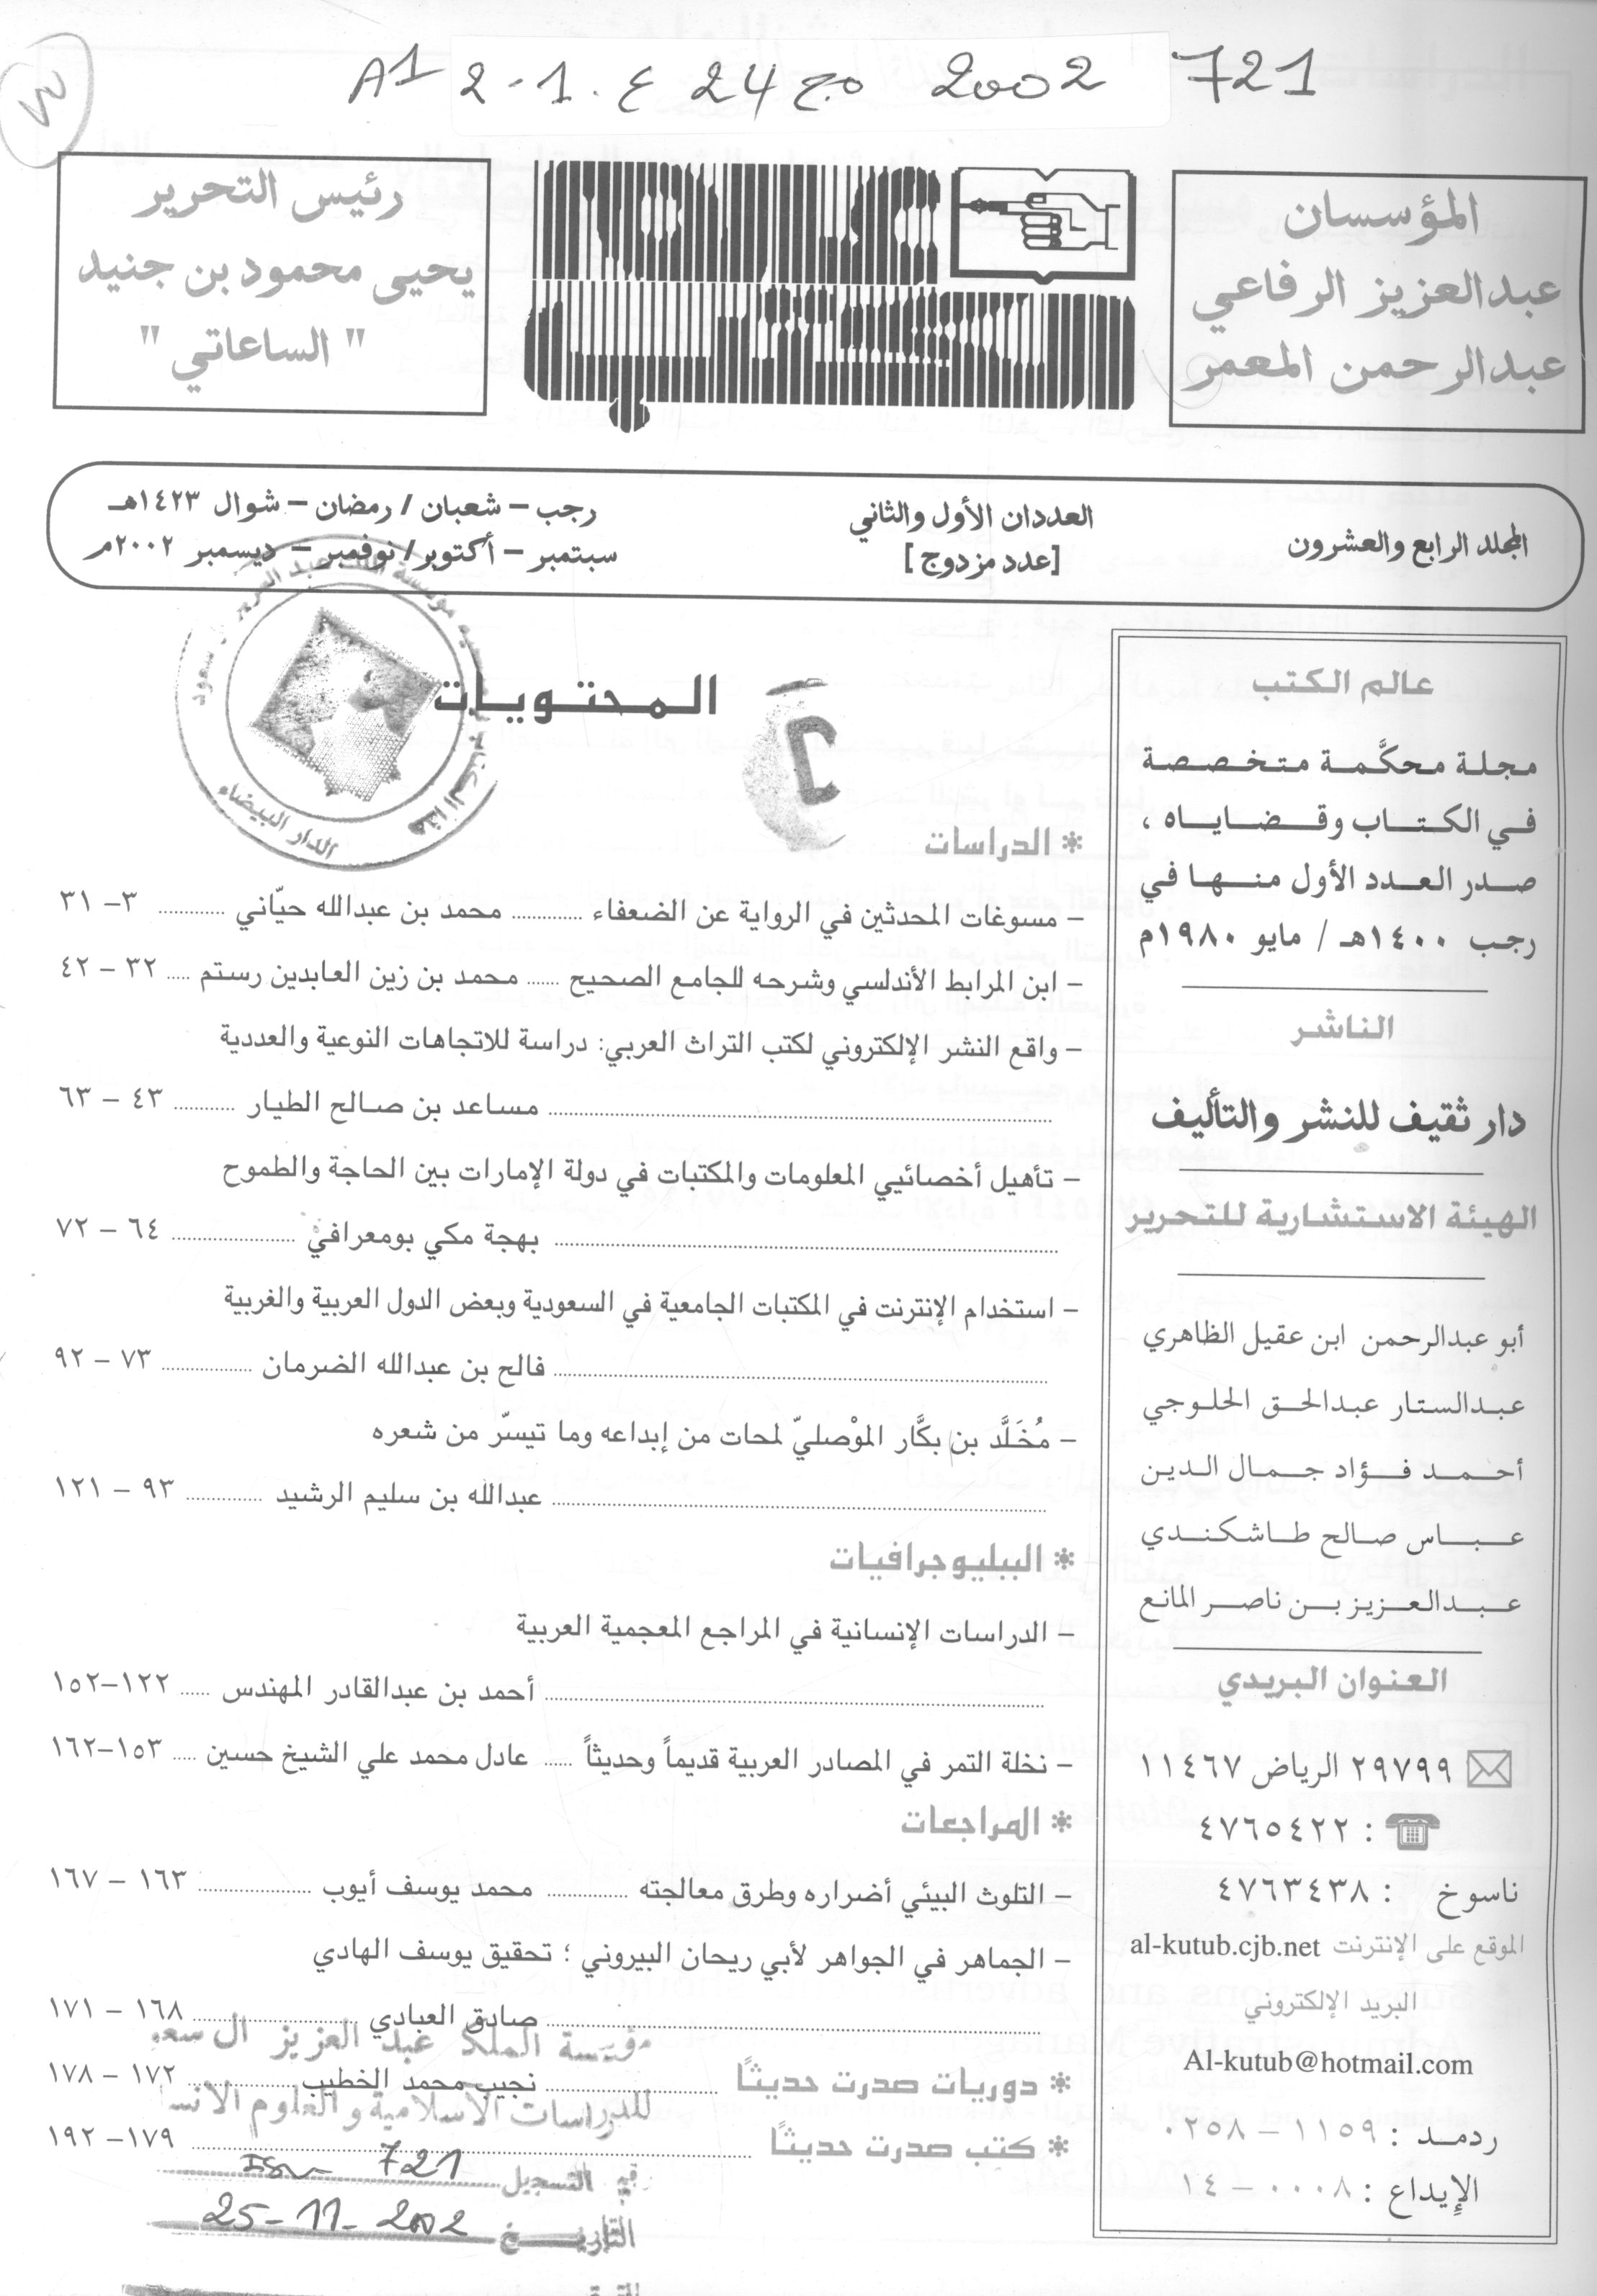 721 2002 مج 24 ع. 1-2 A1
المؤسسان
عبدالعزيز الرفاعي
عبدالرحمن المعمر
عالم الكتب
رئيس التحرير
يحيى محمود بن جنيد
" الساعاتي "
المجلد الرابع والعشرون
العددان الأول والثاني
[عدد مزدوج]
رجب – شعبان / رمضان – شوال ١٤٢٣هـ
سبتمبر – أكتوبر/ نوفمبر – ديسمبر ٢٠٠٢م
عالم الكتب
مجلة محكَّمة متخصصة
في الكتاب وقضاياه ،
صدر العدد الأول منها في
رجب ١٤٠٠هـ / مايو ١٩٨٠م
الناشر
دار ثقيف للنشر والتأليف
الهيئة الاستشارية للتحرير
أبو عبدالرحمن ابن عقيل الظاهري
عبدالستار عبدالحق الحلوجي
أحمد فؤاد جمال الدين
عباس صالح طاشكندي
عبدالعزيز بن ناصر المانع
العنوان البريدي
٢٩٧٩٩ الرياض ١١٤٦٧
: ٤٧٦٥٤٢٢
ناسوخ : ٤٧٦٣٤٣٨
الموقع على الإنترنت al-kutub.cjb.net
البريد الإلكتروني
Al-kutub@hotmail.com
ردمد : ١١٥٩ – ٠٢٥٨
الإيداع : ٠٠٠٨ – ١٤
المحتويات
* الدراسات
– مسوغات المحدثين في الرواية عن الضعفاء ........... محمد بن عبدالله حيّاني ........... ٣– ٣١
– ابن المرابط الأندلسي وشرحه للجامع الصحيح ...... محمد بن زين العابدين رستم ..... ٣٢ – ٤٢
– واقع النشر الإلكتروني لكتب التراث العربي: دراسة للاتجاهات النوعية والعددية
........... مساعد بن صالح الطيار ........... ٤٣ – ٦٣
– تأهيل أخصائيي المعلومات والمكتبات في دولة الإمارات بين الحاجة والطموح
........... بهجة مكي بومعرافي ........... ٦٤ – ٧٢
– استخدام الإنترنت في المكتبات الجامعية في السعودية وبعض الدول العربية والغربية
........... فالح بن عبدالله الضرمان ........... ٧٣ – ٩٢
– مُخَلَّد بن بكَّار الموْصليّ لمحات من إبداعه وما تيسّر من شعره
........... عبدالله بن سليم الرشيد ........... ٩٣ – ١٢١
* الببليوجرافيات
– الدراسات الإنسانية في المراجع المعجمية العربية
........... أحمد بن عبدالقادر المهندس ..... ١٢٢–١٥٢
– نخلة التمر في المصادر العربية قديماً وحديثاً ..... عادل محمد علي الشيخ حسين ..... ١٥٣–١٦٢
* المراجعات
– التلوث البيئي أضراره وطرق معالجته ........... محمد يوسف أيوب ........... ١٦٣ – ١٦٧
– الجماهر في الجواهر لأبي ريحان البيروني ؛ تحقيق يوسف الهادي
........... صادق العبادي ........... ١٦٨ – ١٧١
* دوريات صدرت حديثاً ........... نجيب محمد الخطيب ........... ١٧٢ – ١٧٨
* كتب صدرت حديثاً ........... ١٧٩– ١٩٢
مؤسسة الملك عبد العزيز آل سعو
للدراسات الاسلامية و العلوم الانسا
رقم التسجيل 721
التاريخ 25-11-2002
الدار البيضاء